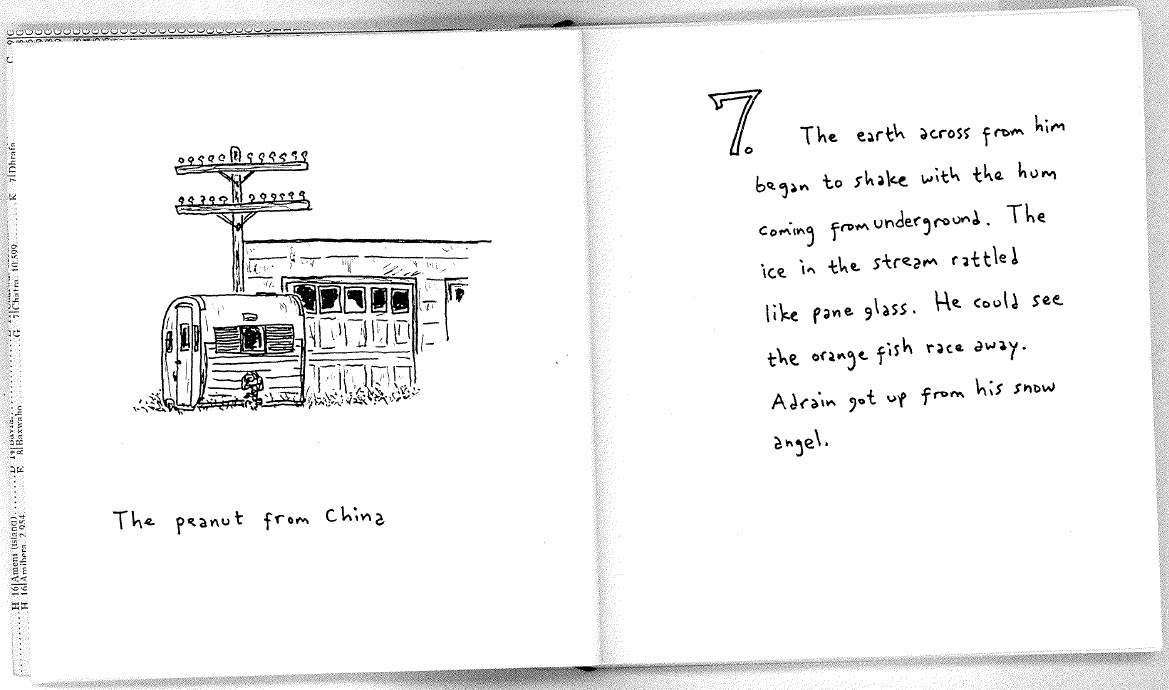 The peanut from China
7. The earth across from him
began to shake with the hum
coming from underground. The
ice in the stream rattled
like pane glass. He could see
the orange fish race away.
Adrain got up from his snow
angel.
K 7|Dhrafa
G 7|Ghatra, 10,599
E 8|Baxwaho
H 16|Ameni (island)
H 16|Amihera, 2,954